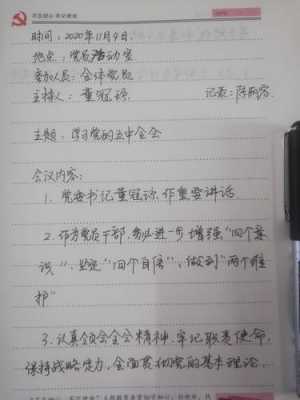 不忘初心 牢记使命
时间：2020年11月9日
地点：党员活动室
参加人员：全体党员
主持人：董冠琼 记录：陈丽容
主题：学习党的五中全会
会议内容：
1、党委书记董冠琼作重要讲话
2、作为党员干部，务必进一步增强“四个意
识”、坚定“四个自信”，做到“两个维
护”
3、认真领会全会精神，牢记职责使命，
保持战略定力，全面贯彻党的基本理论，